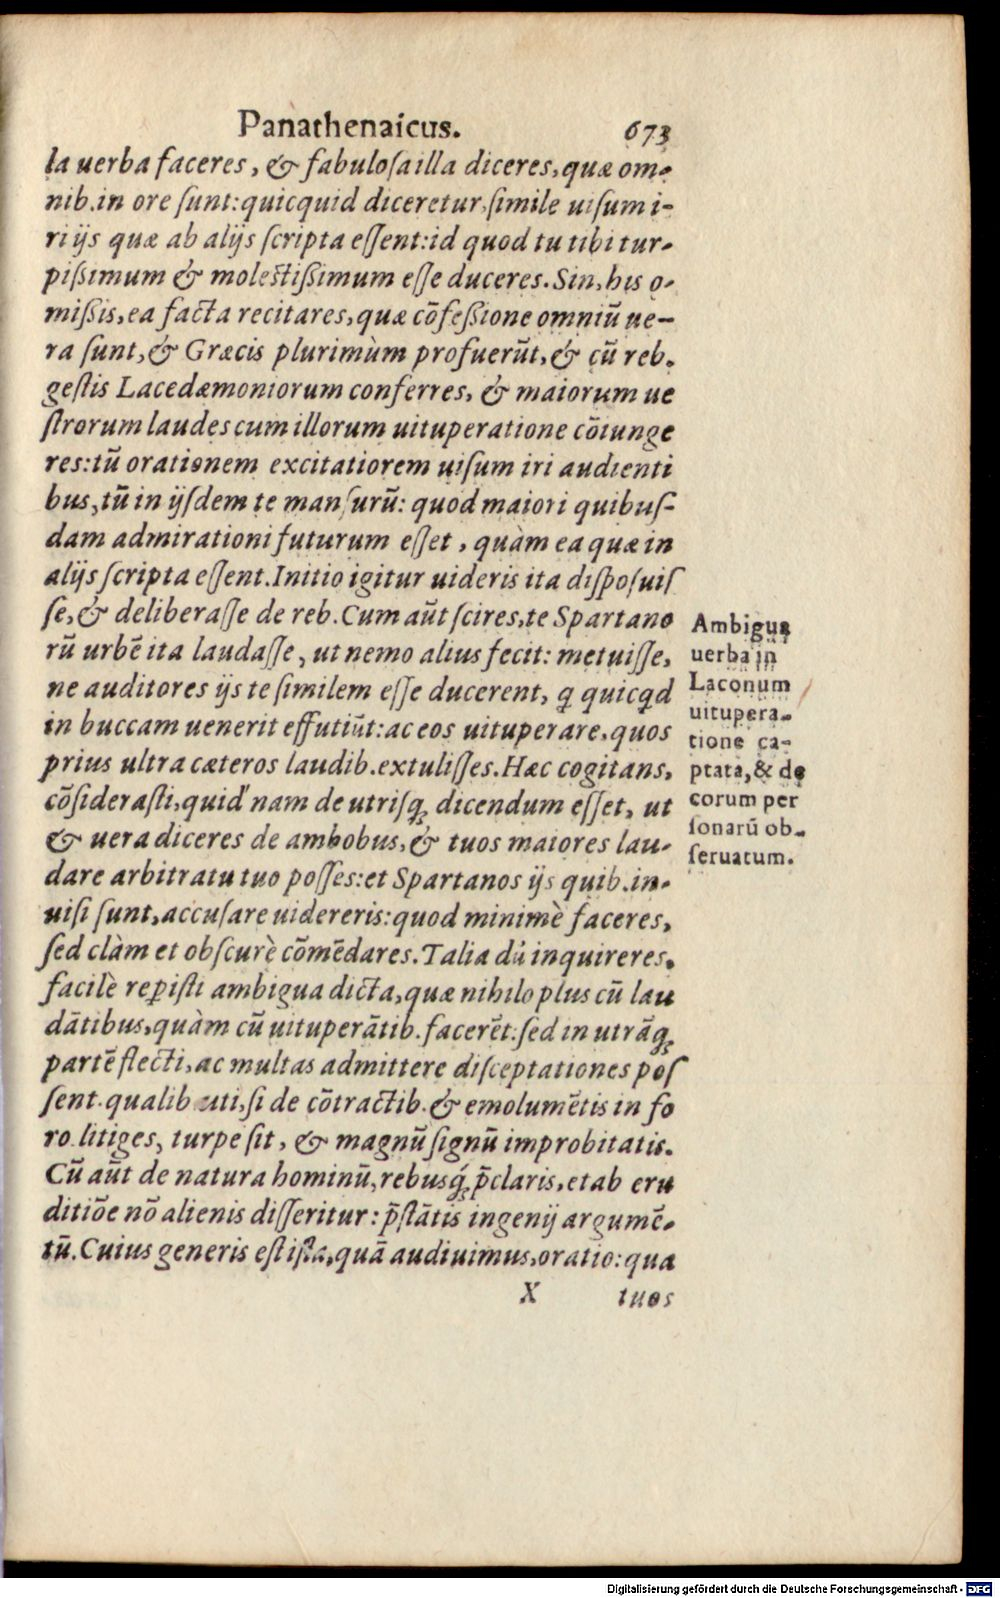 Panathenaicus. 673
la uerba faceres, & fabulosa illa diceres, quæ om-
nib. in ore sunt: quicquid diceretur, simile uisum i-
ri ijs quæ ab alijs scripta essent: id quod tu tibi tur-
pißimum & molestißimum esse duceres. Sin, his o-
mißis, ea facta recitares, quæ cõfeßione omniũ ue-
ra sunt, & Græcis plurimùm profuerũt, & cũ reb.
gestis Lacedæmoniorum conferres, & maiorum ue
strorum laudes cum illorum uituperatione cõiunge
res: tũ orationem excitatiorem uisum iri audienti
bus, tũ in ijsdem te mansurũ: quod maiori quibus-
dam admirationi futurum esset, quàm ea quæ in
alijs scripta essent. Initio igitur uideris ita disposuis
se, & deliberasse de reb. Cum aũt scires, te Spartano
rũ urbẽ ita laudasse, ut nemo alius fecit: metuisse,
ne auditores ijs te similem esse ducerent, q quicqd
in buccam uenerit effutiũt: ac eos uituperare, quos
prius ultra cæteros laudib. extulisses. Hæc cogitans,
cõsiderasti, quid nam de utrisq; dicendum esset, ut
& uera diceres de ambobus, & tuos maiores lau-
dare arbitratu tuo posses: et Spartanos ijs quib. in-
uisi sunt, accusare uidereris: quod minimè faceres,
sed clàm et obscurè cõmẽdares. Talia dũ inquireres,
facilè rep̱isti ambigua dicta, quæ nihilo plus cũ lau
dãtibus, quàm cũ uituperãtib. facerẽt: sed in utrãq;
partẽ flecti, ac multas admittere disceptationes pos
sent. qualib. uti, si de cõtractib. & emolumẽtis in fo
ro litiges, turpe sit, & magnũ signũ improbitatis.
Cũ aũt de natura hominũ, rebusq́; p̃claris, et ab eru
ditiõe nõ alienis disseritur: p̃stãtis ingenij argumẽ-
tũ. Cuius generis est ista, quã audiuimus, oratio: qua
X tuos
Ambigua
uerba in
Laconum
uitupera-
tione ca-
ptata, & de
corum per
sonarũ ob-
seruatum.
Digitalisierung gefördert durch die Deutsche Forschungsgemeinschaft - DFG